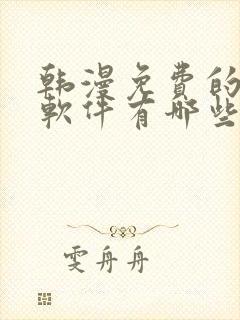 韩漫免費的
軟件有哪些
雯舟舟